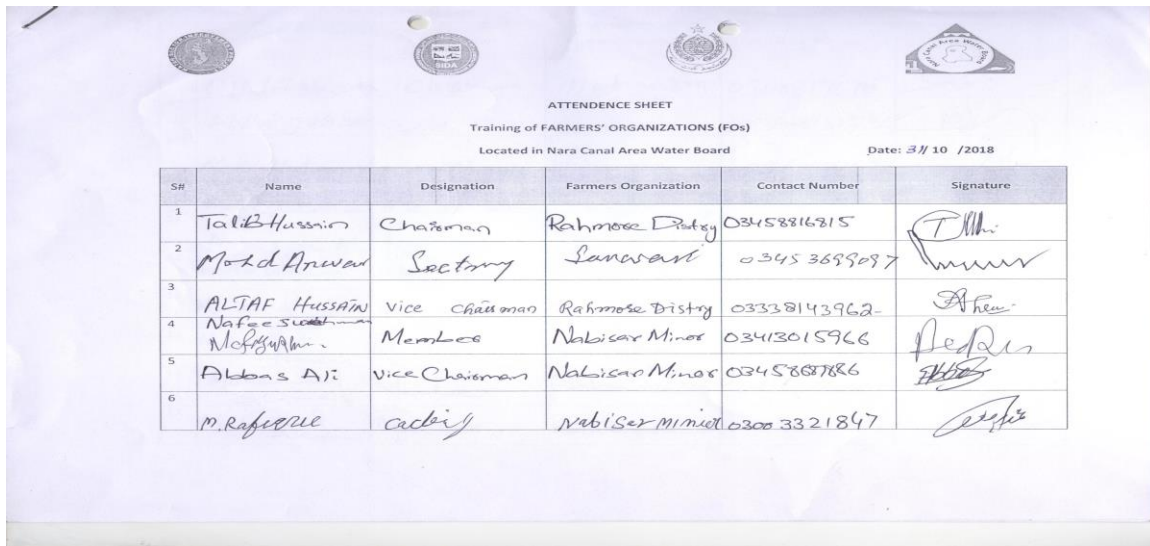 SIDA
Nara Canal Area Water Board
ATTENDENCE SHEET
Training of FARMERS' ORGANIZATIONS (FOs)
Located in Nara Canal Area Water Board
Date: 31/ 10 /2018
S# Name Designation Farmers Organization Contact Number Signature
1 Talib Hussain Chairman Rahmore Distry 03458816815
2 Mohd Anwar Sectrry 03453699097
3 ALTAF HUSSAIN vice chairman Rahmore Distry 03338143962
4 Nafees
Member Nabisar Minor 03413015966
5 Abbas Ali Vice Chairman Nabisar Minor
6 M. Rafique Nabiser Minior 0300 3321847